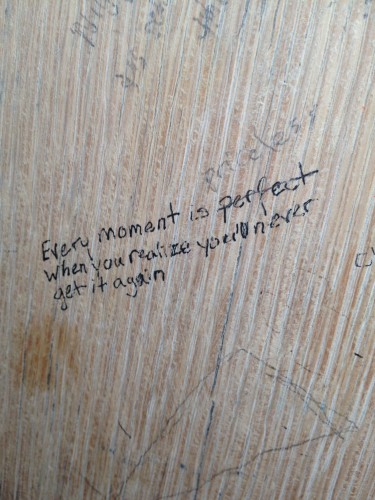 priceless
Every moment is perfect
when you realize you'll never
get it again